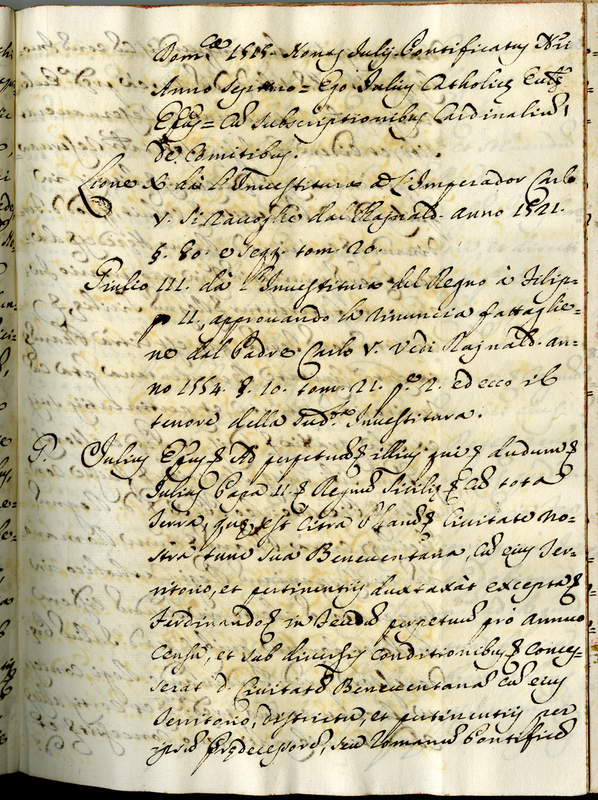 Dom.cæ 1510. Nonas Julij Pontificatus Nri
Anno Septimo = Ego Julius Catholicæ Eccl.æ
Epus = Cũ subscriptionibus Cardinaliũ
de Comitibus.
Leone X. dà l'Investitura à L'Imperador Carlo
V. si raccoglie dal Rajnald. anno 1521.
§. 80. e segt. tom. 20.
Giulio III. dà l'Investitura del Regno à Filip=
po II., approvando la rinuncia fattaglie=
ne dal Padre Carlo V. Vedi Rajnald. an=
no 1554. §. 10. tom. 21. p.e 2. ed ecco il
tenore della sud.ta Investitura.
G. Julius Epus Ad perpetuã illius qui dudum
Julius Papa II. Regnũ Siciliæ Cũ tota
Terra, quæ est citra Civitate no=
stra tunc sua Beneventana, cũ ejus Ter=
ritorio, et pertinentiis duxtaxàt excepta
Ferdinando in feudũ perpetuũ pro annuo
Censu, et sub diversis conditionibus conces=
serat d. Civitatẽ Beneventanã cũ ejus
Territorio, districtu, et pertinentiis per
ipsũ Prædecessorẽ, seu Romanũ Pontificẽ